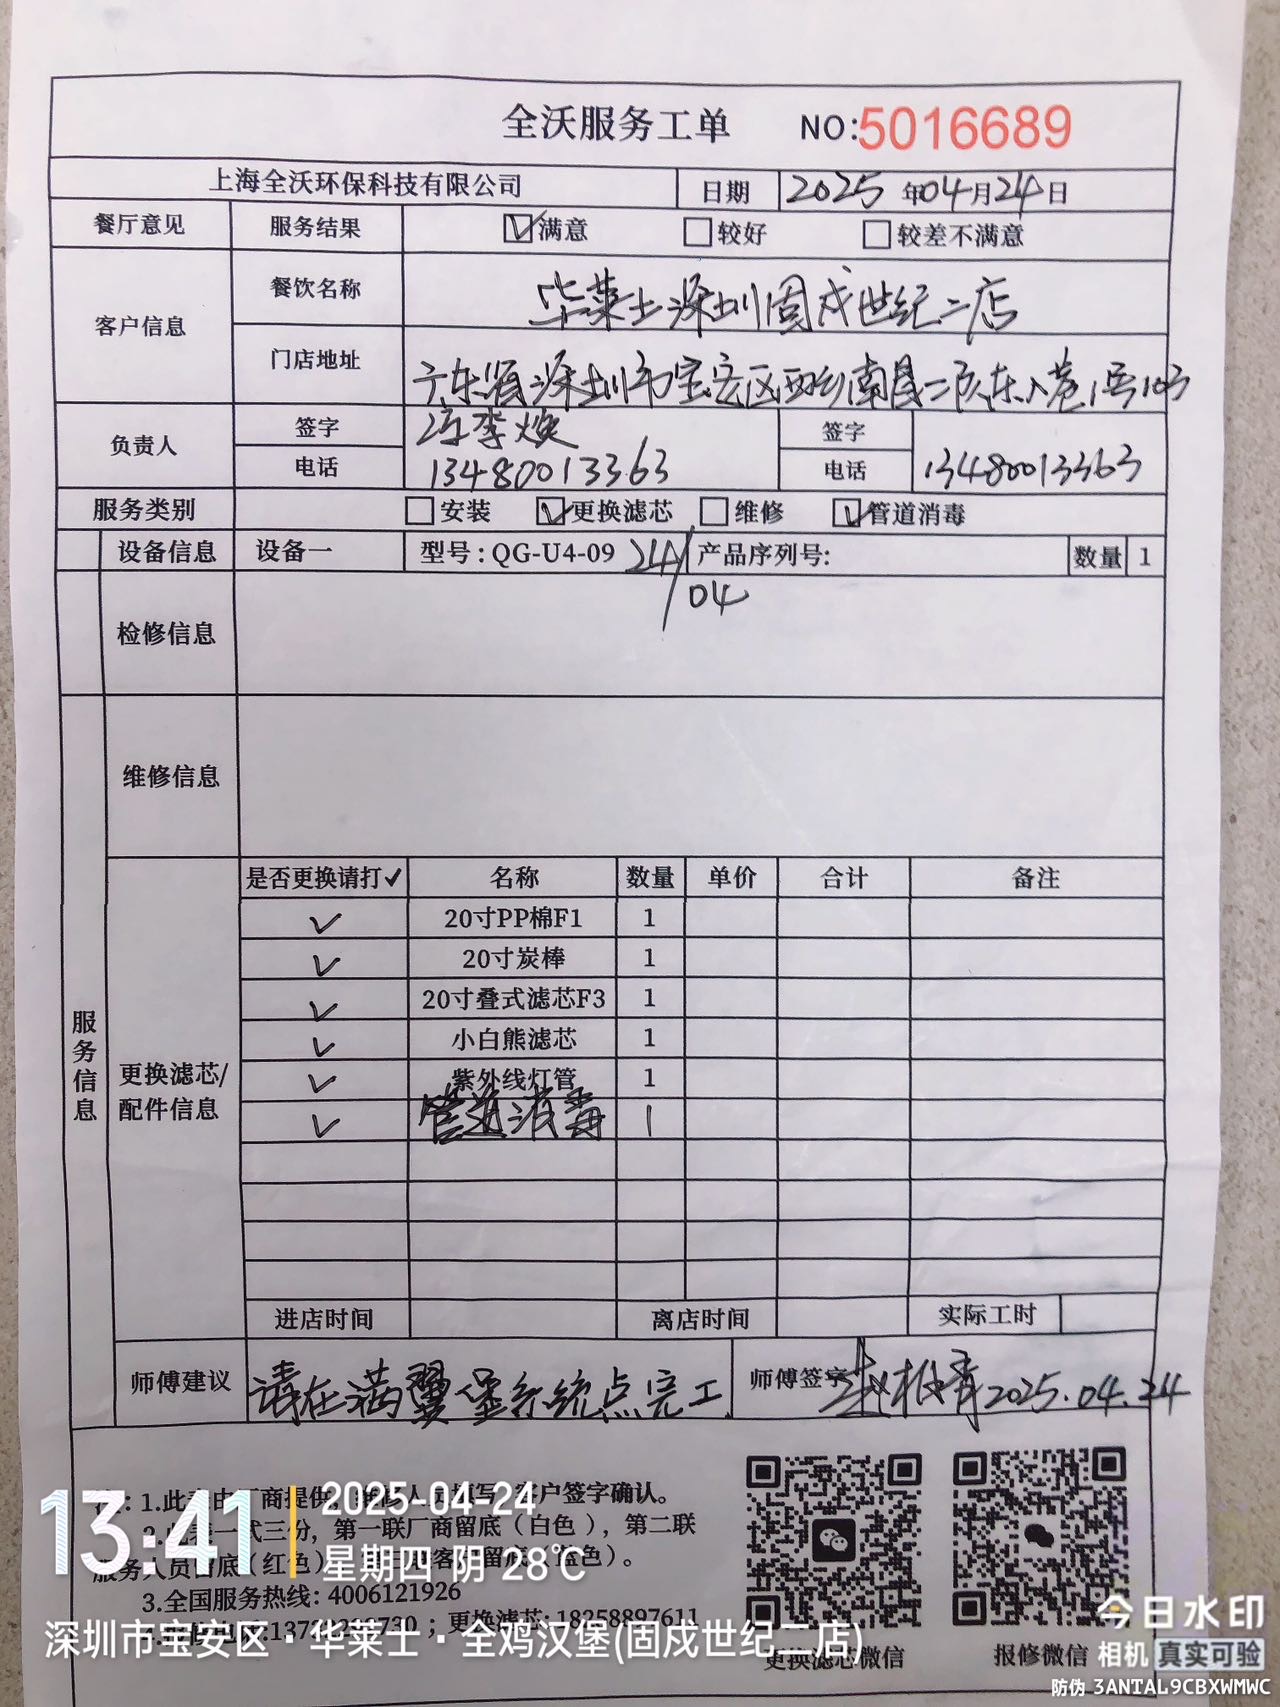 全沃服务工单 NO:5016689
上海全沃环保科技有限公司 日期 2025年04月24日
餐厅意见 服务结果 ☑满意 □较好 □较差不满意
客户信息 餐饮名称 华莱士深圳固戍世纪二店
门店地址 广东省深圳市宝安区西乡南昌二队东八巷1号103
负责人 签字 李焕 签字
电话 13480013363 电话 13480013363
服务类别 □安装 ☑更换滤芯 □维修 ☑管道消毒
设备信息 设备一 型号:QG-U4-09 24/04 产品序列号: 数量 1
检修信息
维修信息
服务信息
更换滤芯/配件信息
是否更换请打✓ 名称 数量 单价 合计 备注
✓ 20寸PP棉F1 1
✓ 20寸炭棒 1
✓ 20寸叠式滤芯F3 1
✓ 小白熊滤芯 1
✓ 紫外线灯管 1
✓ 管道消毒 1
进店时间 离店时间 实际工时
师傅建议 请在满翼堡系统点完工 师傅签字 2025.04.24
1.此 由厂商提供 户签字确认。
一式三份，第一联厂商留底（白色），第二联
服务人员留底（红色） 客 留底（蓝色）。
3.全国服务热线: 4006121926
730；更换滤芯: 18258897611
更换滤芯微信 报修微信
13:41 2025-04-24
星期四 阴 28℃
深圳市宝安区·华莱士·全鸡汉堡(固戍世纪二店)
今日水印
相机 真实可验
防伪 3ANTAL9CBXWMWC